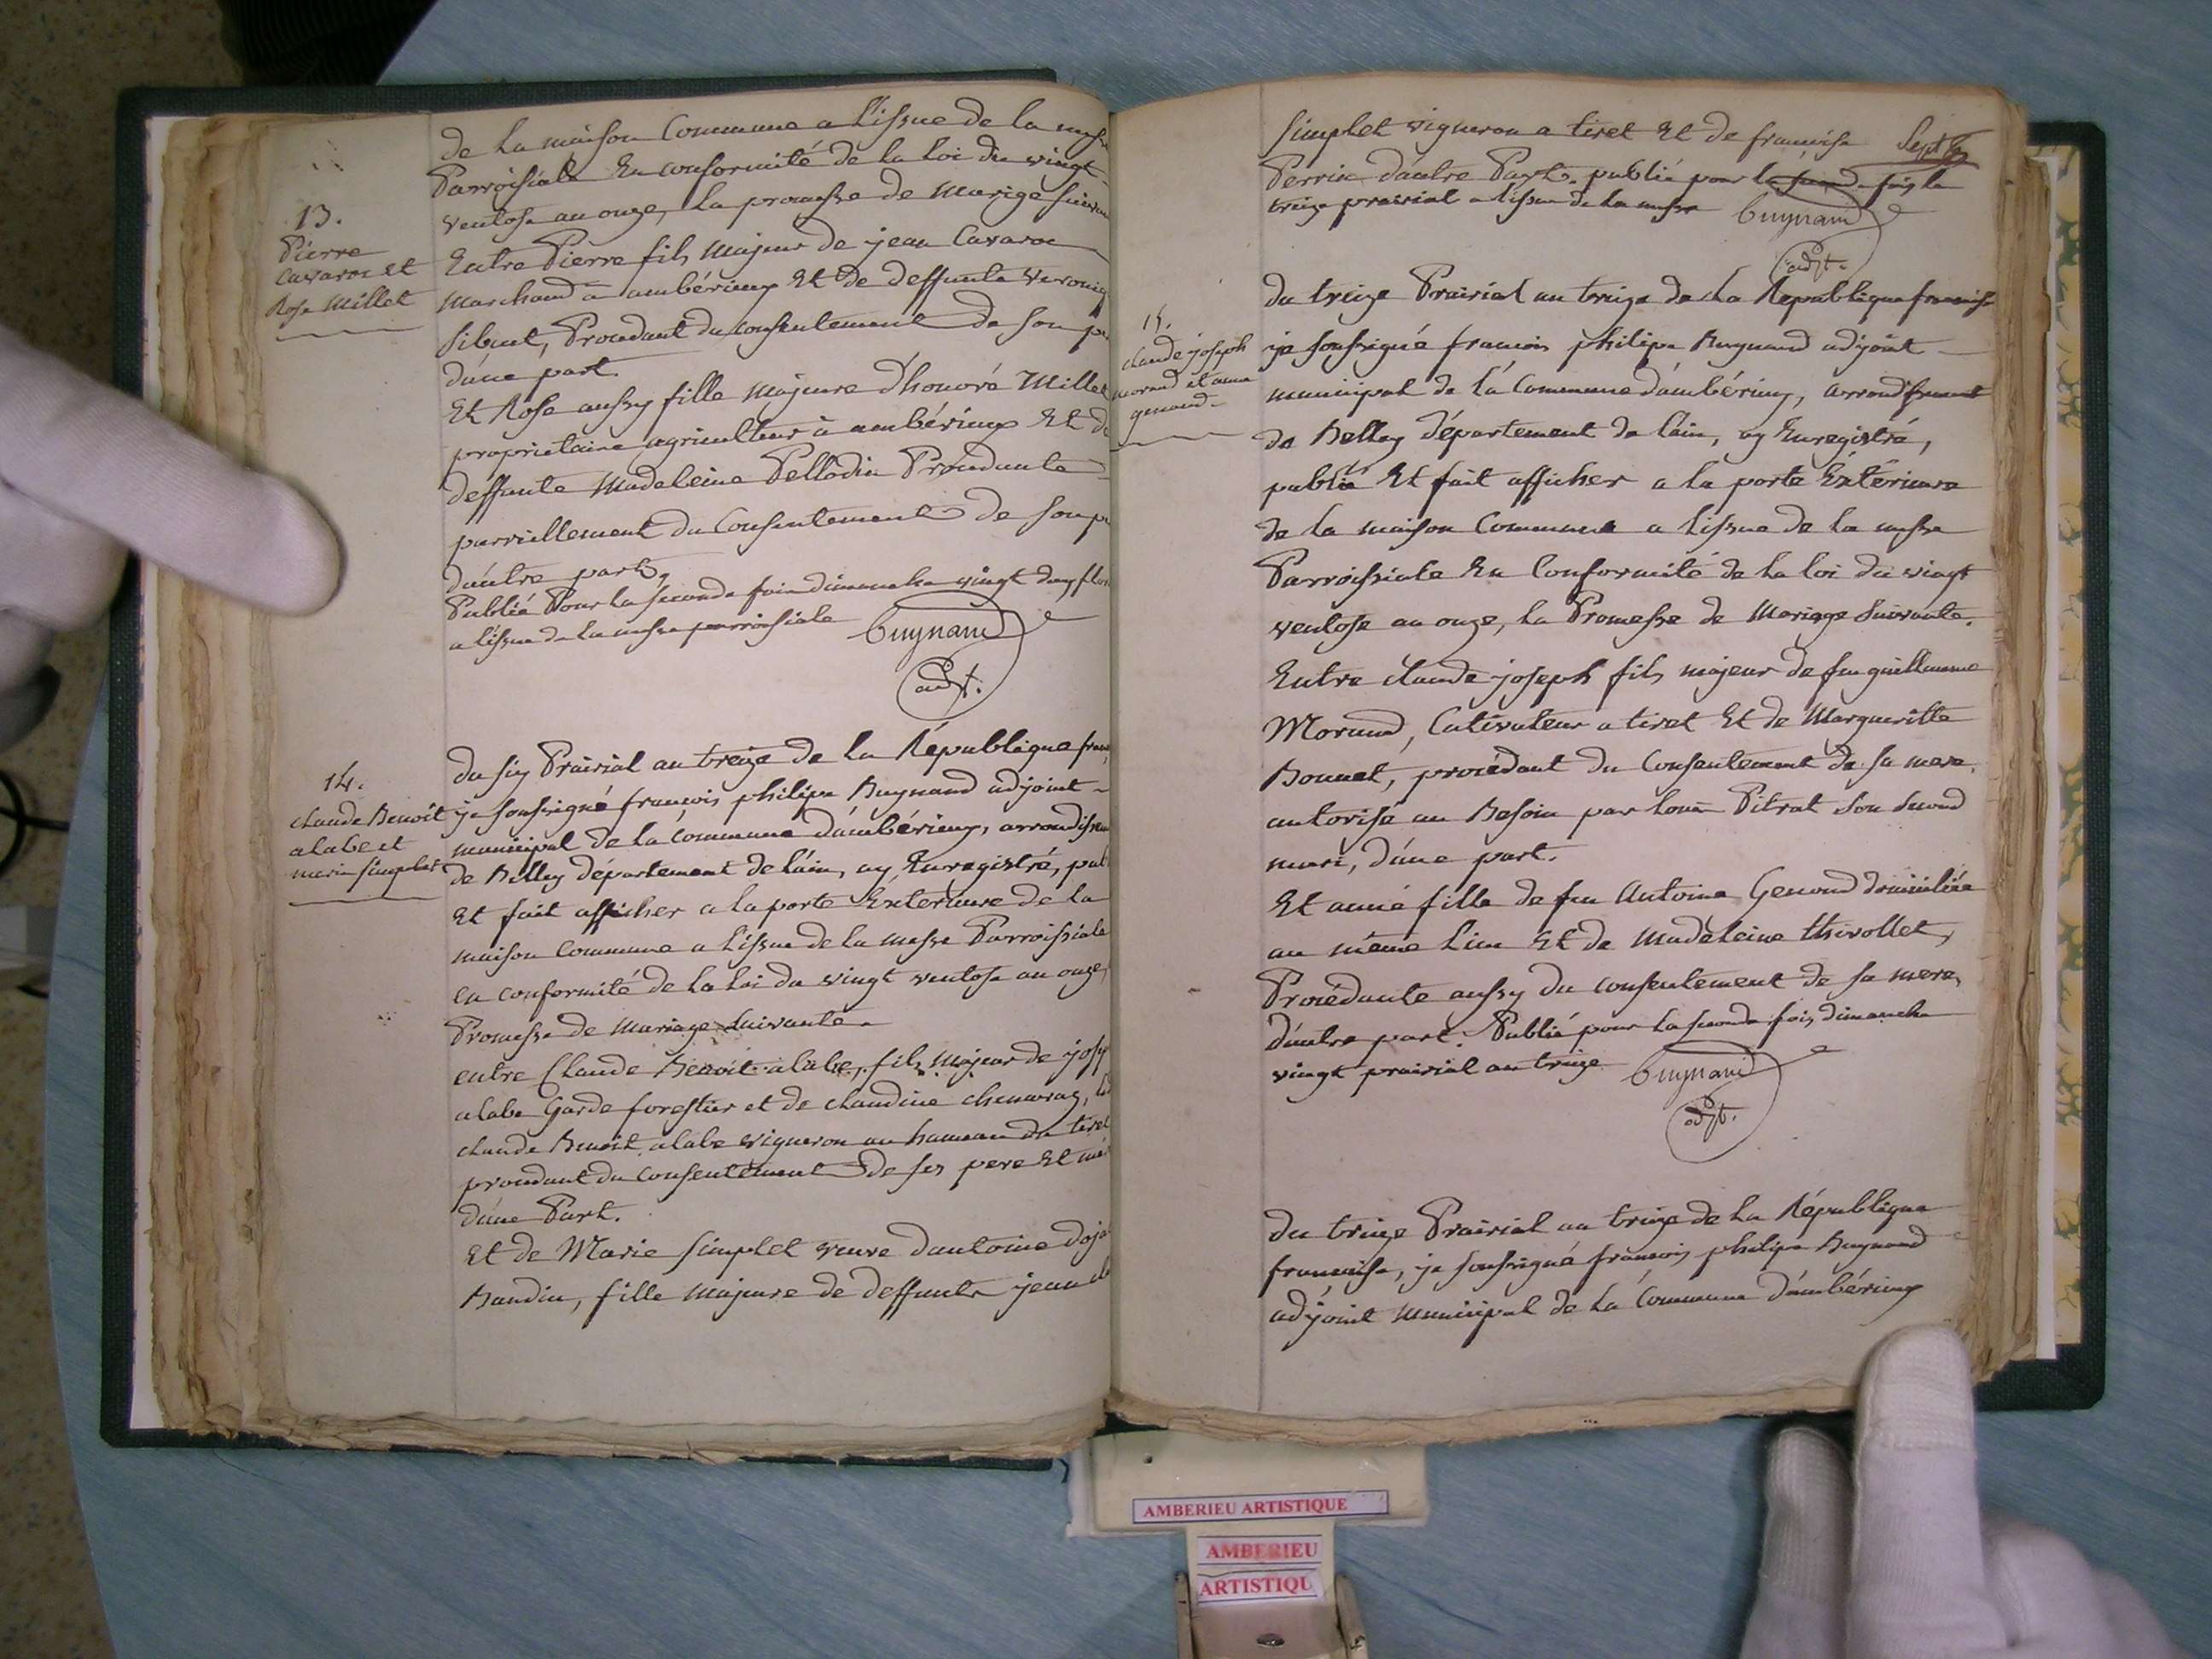 de la maison Commune a L'issue de la messe
Parroisiale En conformité de la loi du vingt
ventose an onze, la promesse de Mariage suivan
13.
Pierre
Cavaroc et
Rose Millet
Entre Pierre fils Majeur de jean Cavaroc
Marchand à ambérieux Et de deffunte Veroniq
Sibuet, Procedant du consentement de son pe
d'une part.
Et Rose aussy fille Majeure d'honoré Millet
proprietaire agriculteur à ambérieux Et de
deffunte Madeleine Pellodin Procedante
parreillement du Consentement de son p
d'autre part,
Publié Pour la seconde fois dimanche vingt deux flo
a l'issue de la messe parroisiale
Buynand
adjt.
14.
Claude Benoît
alabe et
marie simplet
du six Prairial an treize de la République fran
je soussigné françois philipe Buynand adjoint
municipal de la commune d'ambérieux, arrondissem
de Belley département de l'ain, ay Enregistré, pub
Et fait afficher a la porte Exterieure de la
maison Commune a l'issue de la messe Parroissiale
en conformité de la loi du vingt ventose an onze,
Promesse de Mariage suivante.
entre Claude Benoit alabe, fils majeur de josep
alabe Garde forestier et de claudine chenavaz,
claude Benoit alabe vigneron au hameau du tiret
procedant du consentement de ses pere Et mè
d'une Part.
Et de Marie simplet veuve d'antoine
Baudin, fille majeure de deffunts jean
simplet vigneron a tiret Et de francoise
Sept
Perrin d'autre Part. publié pour la seconde fois le
treize prairial a l'issue de la messe
Buynand
adjt.
15.
claude joseph
morand et anne
genoud
du treize Prairial an treize de la République francaise
je soussigné francois philipe Buynand adjoint
municipal de la Commune d'ambérieux, arrondissement
de Belley département de l'ain, ay Enregistré,
publié Et fait afficher a la porte Extérieure
de la maison Commune a l'issue de la messe
Parroissiale En Conformité de la loi du vingt
ventose an onze, la Promesse de Mariage suivante.
Entre claude joseph fils majeur de feu guillaume
Morand, Cultivateur a tiret Et de Margueritte
Bonnet, procédant du Consentement de sa mere,
autorisé au Besoin par Louis Pitrat son second
mari, d'une part.
Et anne fille de feu Antoine Genoud domiciliée
au même lieu Et de Madeleine thivollet,
Procédante aussy du consentement de sa mere,
d'autre part. Publié pour la seconde fois dimanche
vingt prairial an treize
Buynand
adjt.
du treize Prairial an treize de la République
francaise, je soussigné francois philipe Buynand
adjoint municipal de la Commune d'ambérieux
AMBERIEU ARTISTIQUE
AMBERIEU
ARTISTIQU